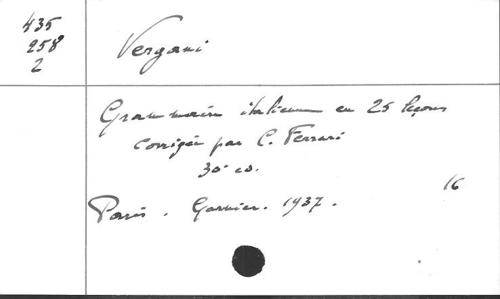 435
258
2
Vergani
Grammaire italienne en 25 leçons
corrigée par C. Ferrari
30e éd.
16
Paris. Garnier. 1937.